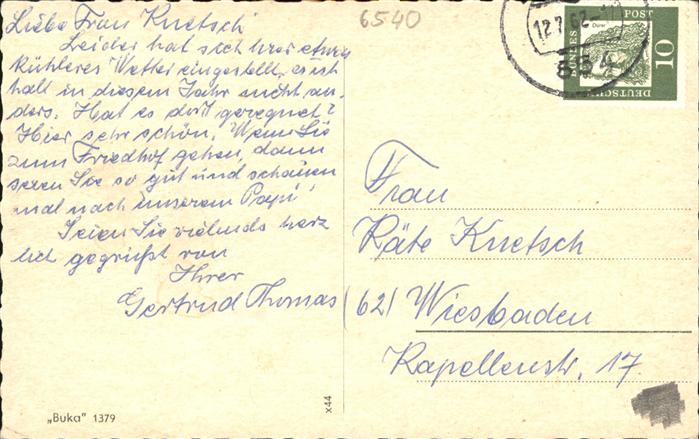 Liebe Frau Knetsch
Leider hat sich hier etwas
kühleres Wetter eingestellt, es ist
halt in diesem Jahr nicht an-
ders. Hat es dort geregnet?
Hier sehr schön. Wenn Sie
zum Friedhof gehen, dann
seien Sie so gut und schauen
mal nach unserem "Papi"
Seien Sie vielmals herz
lich gegrüßt von
Ihrer
Gertrud Thomas
6540
12.7.62
854
DEUTSCHE BUNDESPOST
Dürer
10
Frau
Käte Knetsch
(62) Wiesbaden
Kapellenstr. 17.
x44
„Buka" 1379